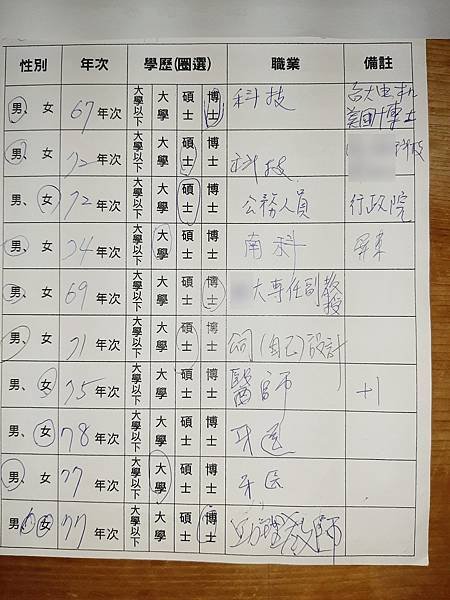 性別 年次 學歷(圈選) 職業 備註
男、女 67年次 大學以下 大學 碩士 博士 科技 台大電機
美國博士
男、女 72年次 大學以下 大學 碩士 博士 科技 科技
男、女 72年次 大學以下 大學 碩士 博士 公務人員 行政院
男、女 74年次 大學以下 大學 碩士 博士 南科 屏東
男、女 69年次 大學以下 大學 碩士 博士 大專任副教授
男、女 71年次 大學以下 大學 碩士 博士 (自己)設計
男、女 75年次 大學以下 大學 碩士 博士 醫師 +1
男、女 78年次 大學以下 大學 碩士 博士 牙醫
男、女 77年次 大學以下 大學 碩士 博士 牙醫
男、女 77年次 大學以下 大學 碩士 博士 教師